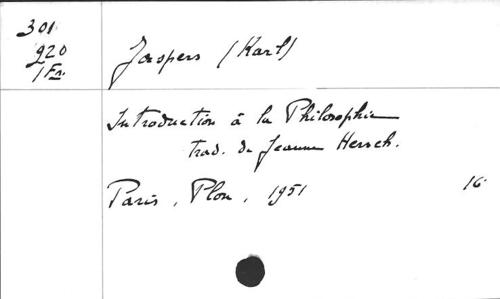 301
920
1 Fr.
Jaspers (Karl)
Introduction à la Philosophie
trad. de Jeanne Hersch.
Paris, Plon, 1951
16